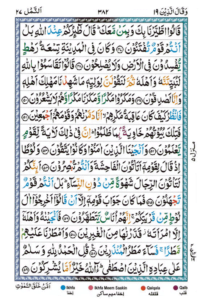 اَلنَّمۡل ٢٧ ٣٨٢ وَقَالَ الَّذِيۡنَ ١٩
قَالُوا اطَّيَّرۡنَا بِكَ وَبِمَنۡ مَّعَكَ ؕ قَالَ طٰٓئِرُكُمۡ عِنۡدَ اللّٰهِ بَلۡ
اَنۡتُمۡ قَوۡمٌ تُفۡتَنُوۡنَ ۞ وَكَانَ فِى الۡمَدِيۡنَةِ تِسۡعَةُ رَهۡطٍ
يُّفۡسِدُوۡنَ فِى الۡاَرۡضِ وَلَا يُصۡلِحُوۡنَ ۞ قَالُوۡا تَقَاسَمُوۡا بِاللّٰهِ
لَـنُبَيِّتَـنَّهٗ وَاَهۡلَهٗ ثُمَّ لَـنَقُوۡلَنَّ لِوَلِيِّهٖ مَا شَهِدۡنَا مَهۡلِكَ اَهۡلِهٖ
وَاِنَّا لَصٰدِقُوۡنَ ۞ وَمَكَرُوۡا مَكۡرًا وَّمَكَرۡنَا مَكۡرًا وَّهُمۡ لَا يَشۡعُرُوۡنَ ۞
فَانْظُرۡ كَيۡفَ كَانَ عَاقِبَةُ مَكۡرِهِمۡۙ اَنَّا دَمَّرۡنٰهُمۡ وَقَوۡمَهُمۡ اَجۡمَعِيۡنَ ۞
فَتِلۡكَ بُيُوۡتُهُمۡ خَاوِيَةً ۢ بِمَا ظَلَمُوۡا ؕ اِنَّ فِىۡ ذٰ لِكَ لَاٰيَةً لِّـقَوۡمٍ
يَّعۡلَمُوۡنَ ۞ وَاَنۡجَيۡنَا الَّذِيۡنَ اٰمَنُوۡا وَكَانُوۡا يَتَّقُوۡنَ ۞ وَلُوۡطًا
اِذۡ قَالَ لِقَوۡمِهٖۤ اَتَاۡتُوۡنَ الۡـفَاحِشَةَ وَاَنۡـتُمۡ تُبۡصِرُوۡنَ ۞ اَٮِٕنَّكُمۡ
لَـتَاۡتُوۡنَ الرِّجَالَ شَهۡوَةً مِّنۡ دُوۡنِ النِّسَآءِ ؕ بَلۡ اَنۡـتُمۡ قَوۡمٌ
تَجۡهَلُوۡنَ ۞ فَمَا كَانَ جَوَابَ قَوۡمِهٖۤ اِلَّاۤ اَنۡ قَالُوۡۤا اَخۡرِجُوۡۤا
اٰلَ لُوۡطٍ مِّنۡ قَرۡيَتِكُمۡ ۚ اِنَّهُمۡ اُنَاسٌ يَّتَطَهَّرُوۡنَ ۞ فَاَنۡجَيۡنٰهُ وَ اَهۡلَهٗۤ
اِلَّا امۡرَاَتَهٗ قَدَّرۡنٰهَا مِنَ الۡغٰبِرِيۡنَ ۞ وَاَمۡطَرۡنَا عَلَيۡهِمۡ
مَّطَرًا ۚ فَسَآءَ مَطَرُ الۡمُنۡذَرِيۡنَ ۞ قُلِ الۡحَمۡدُ لِلّٰهِ وَسَلٰمٌ
عَلٰى عِبَادِهِ الَّذِيۡنَ اصۡطَفٰى ؕ ءٰۤللّٰهُ خَيۡرٌ اَمَّا يُشۡرِكُوۡنَ ۞